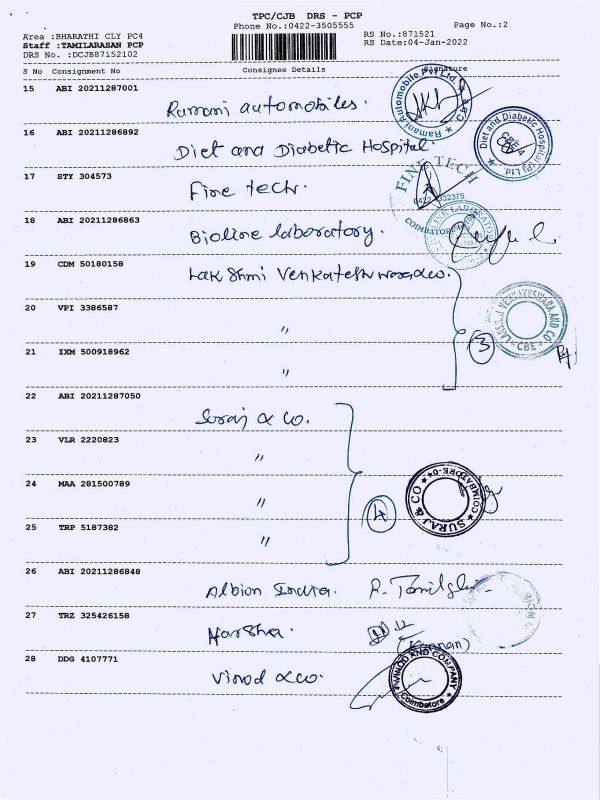 TPC/CJB DRS - PCP
Phone No.:0422-3505555
Page No.:2
Area :BHARATHI CLY PC4
RS No.:871521
Staff :TAMILARASAN PCP
RS Date:04-Jan-2022
DRS No. :DCJB87152102
S No Consignment No Consignee Details Signature
15 ABI 20211287001 Ramani automobiles.
Ramani Automobile Pvt Ltd. CBE
16 ABI 20211286892 Diet and Diabetic Hospital.
Diet and Diabetic Hospital (P) Ltd
CBE-4
17 STY 304573 Fine tech.
FINE TECH
18 ABI 20211286863 Bioline laboratory.
BIOLINE LABORATORY
19 CDM 50180158 Lakshmi Venkateshwara &co.
LAKSHMI VENKATESHWARA AND CO
CBE
20 VPI 3386587 "
3
21 IXM 500918962 "
22 ABI 20211287050 Suraj & Co.
23 VLR 2220823 "
24 MAA 281500789 "
SURAJ & CO
COIMBATORE-
4
25 TRP 5187382 "
26 ABI 20211286848 Albion India.
27 TRZ 325426158 Harsha.
(Kannan)
28 DDG 4107771 Vinod &co.
VINOD AND COMPANY
Coimbatore